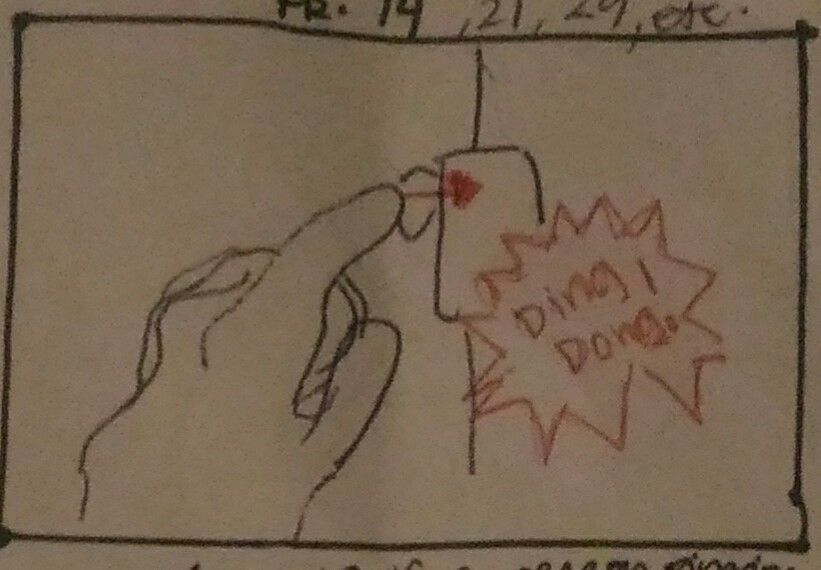 FR. 14, 21, 29, etc.
Ding!
Dong.